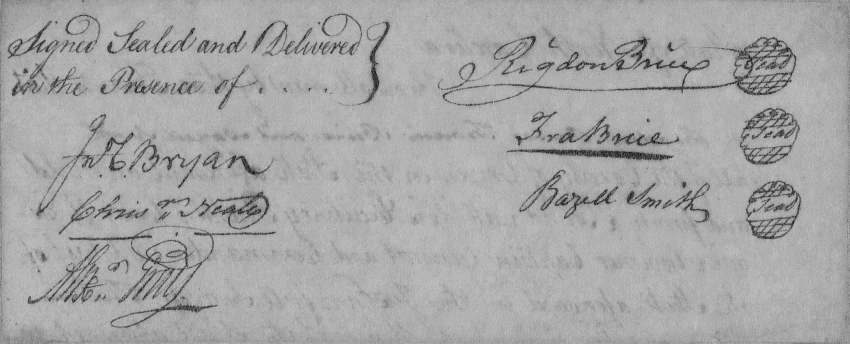 Signed Sealed and Delivered
in the Presence of . . . .
Rigdon Brice Seal
Jno. T. Bryan
Fra Brice Seal
Chris Neale
Bazell Smith Seal